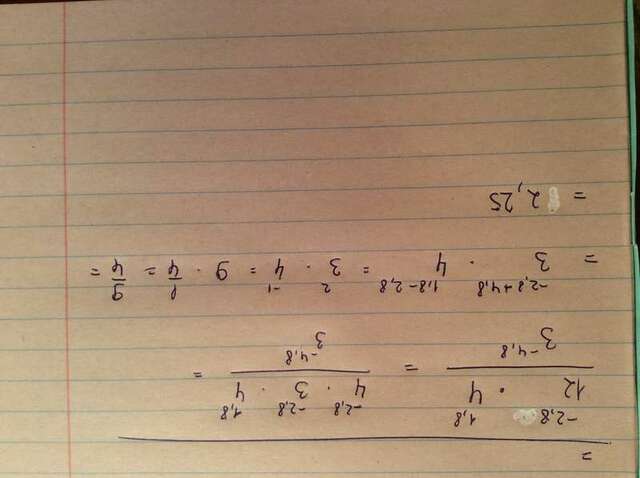 =
12^{-2,8} · 4^{1,8} / 3^{-4,8} = 4^{-2,8} · 3^{-2,8} · 4^{1,8} / 3^{-4,8} =
= 3^{-2,8+4,8} · 4^{1,8-2,8} = 3^{2} · 4^{-1} = 9 · 1/4 = 9/4 =
= 2,25